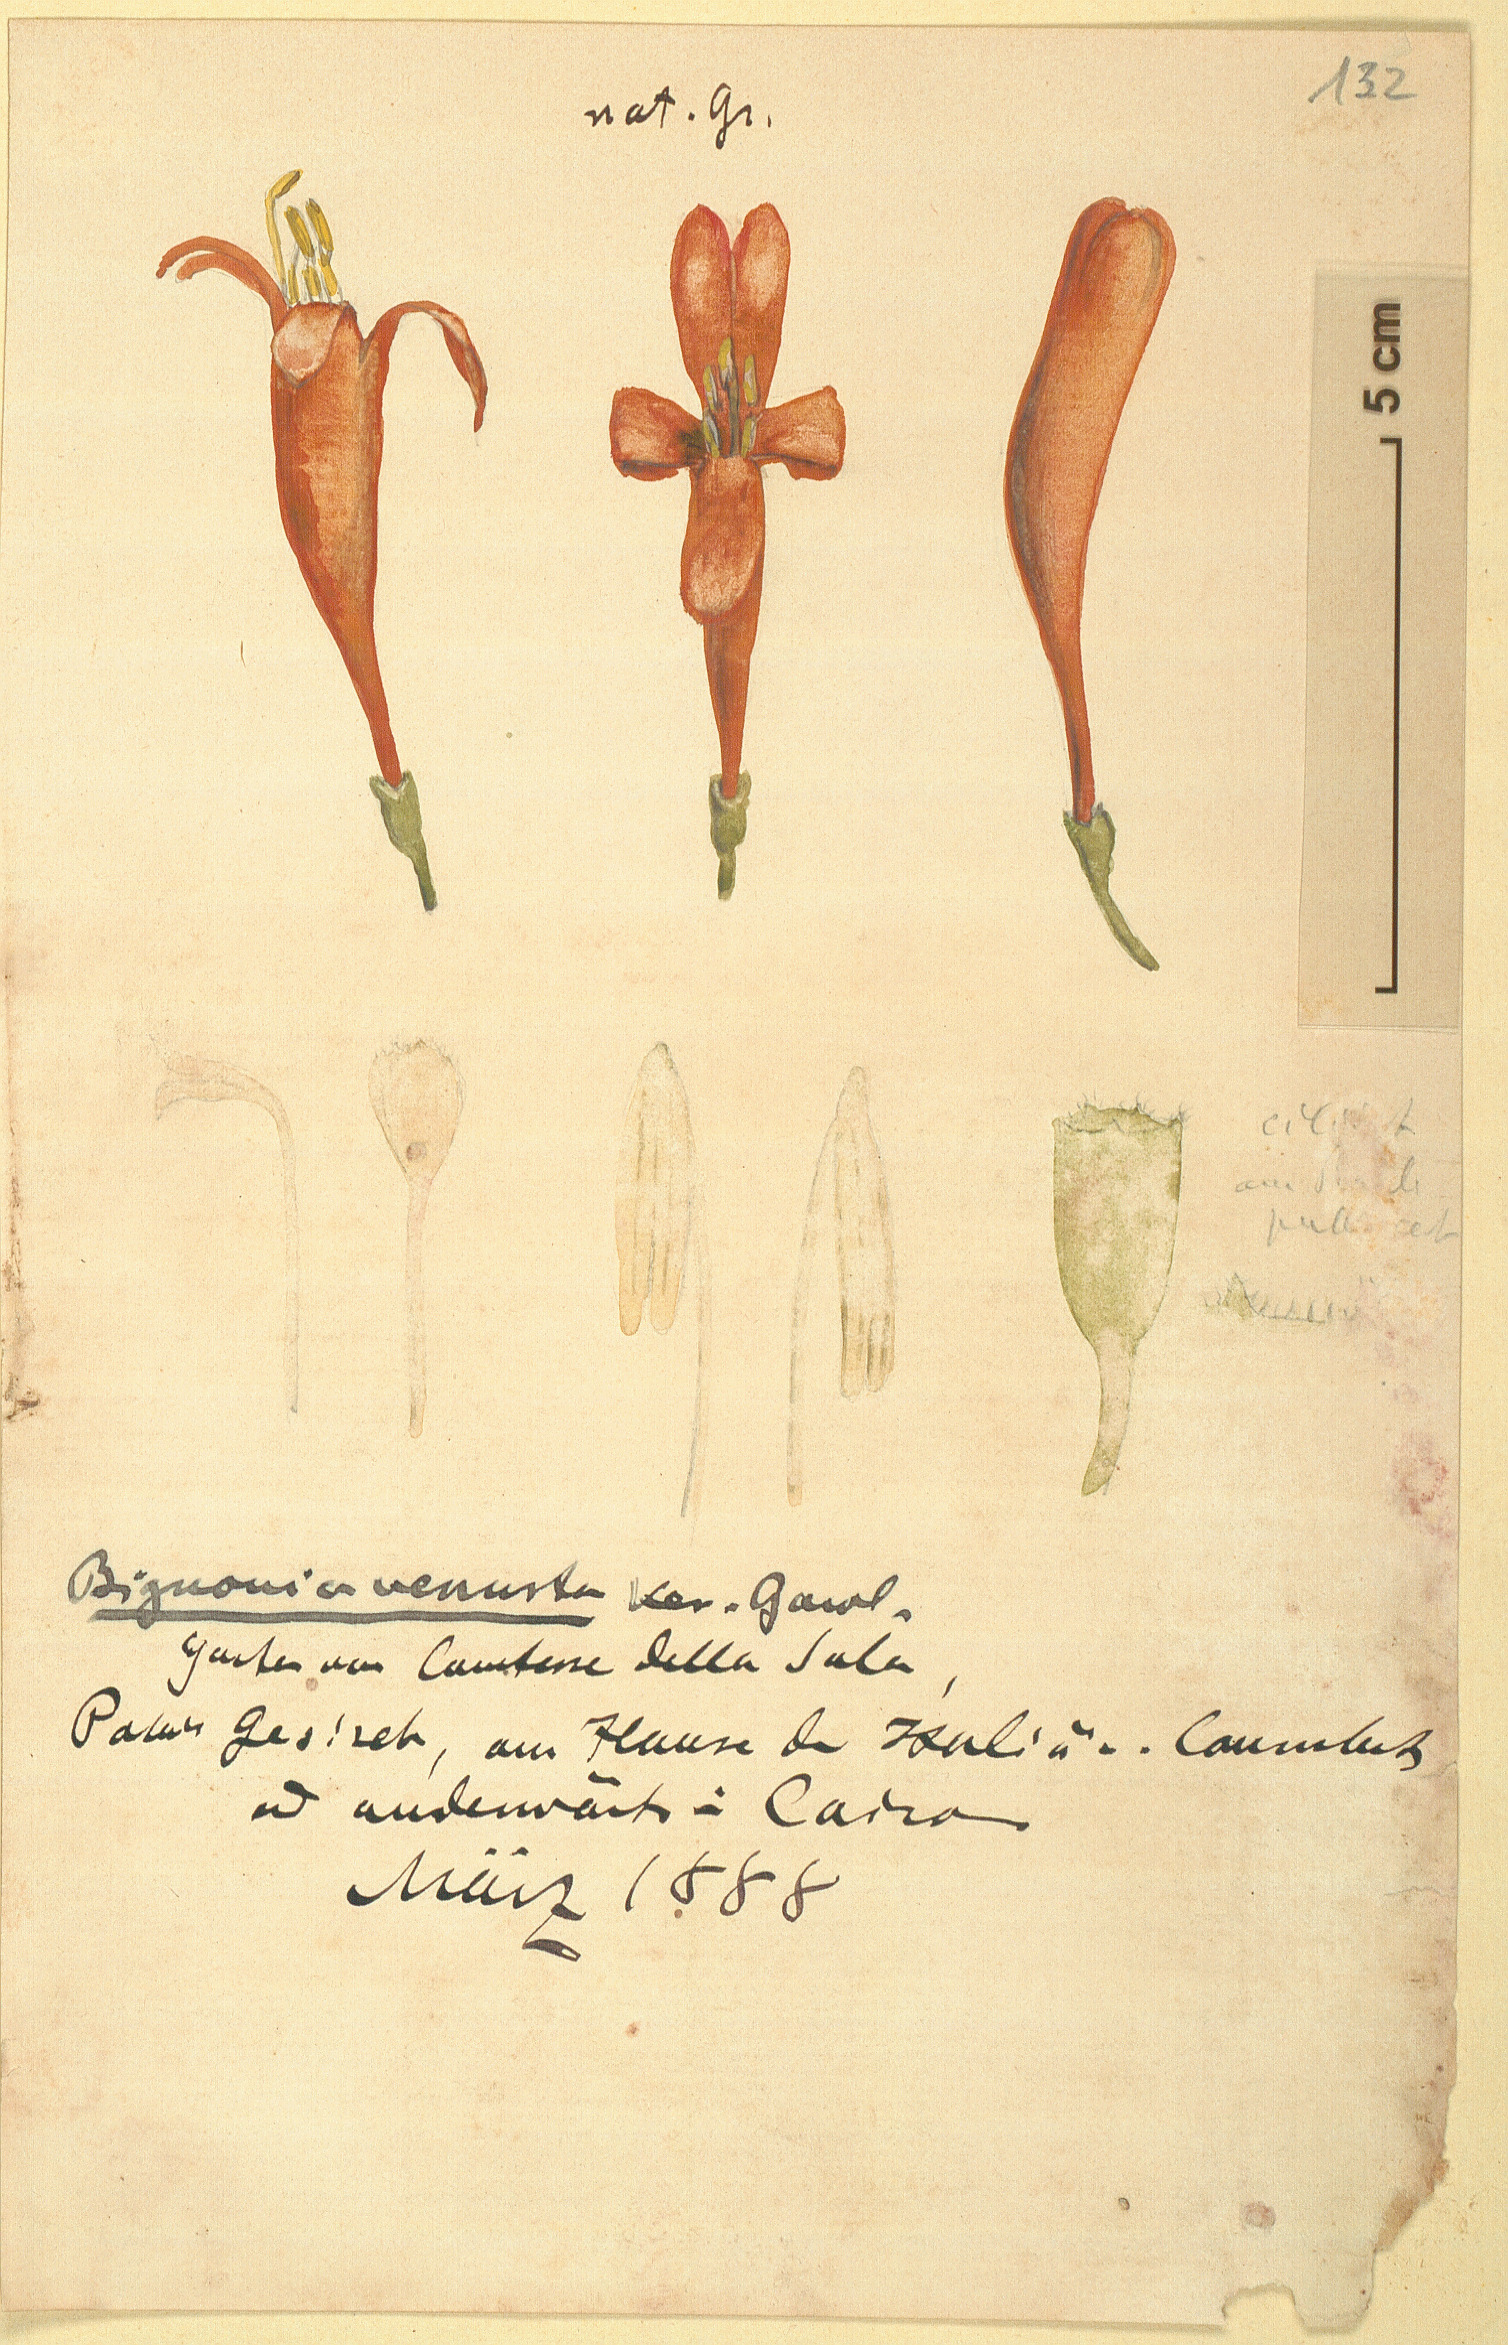 132
nat. Gr.
5 cm
am
Bignonia venusta Ker. Gawl.
Garten von Comtesse della Sala,
Palais Gesireh, am Hause der Italiän. Consulats
und anderwärts in Cairo
März 1888